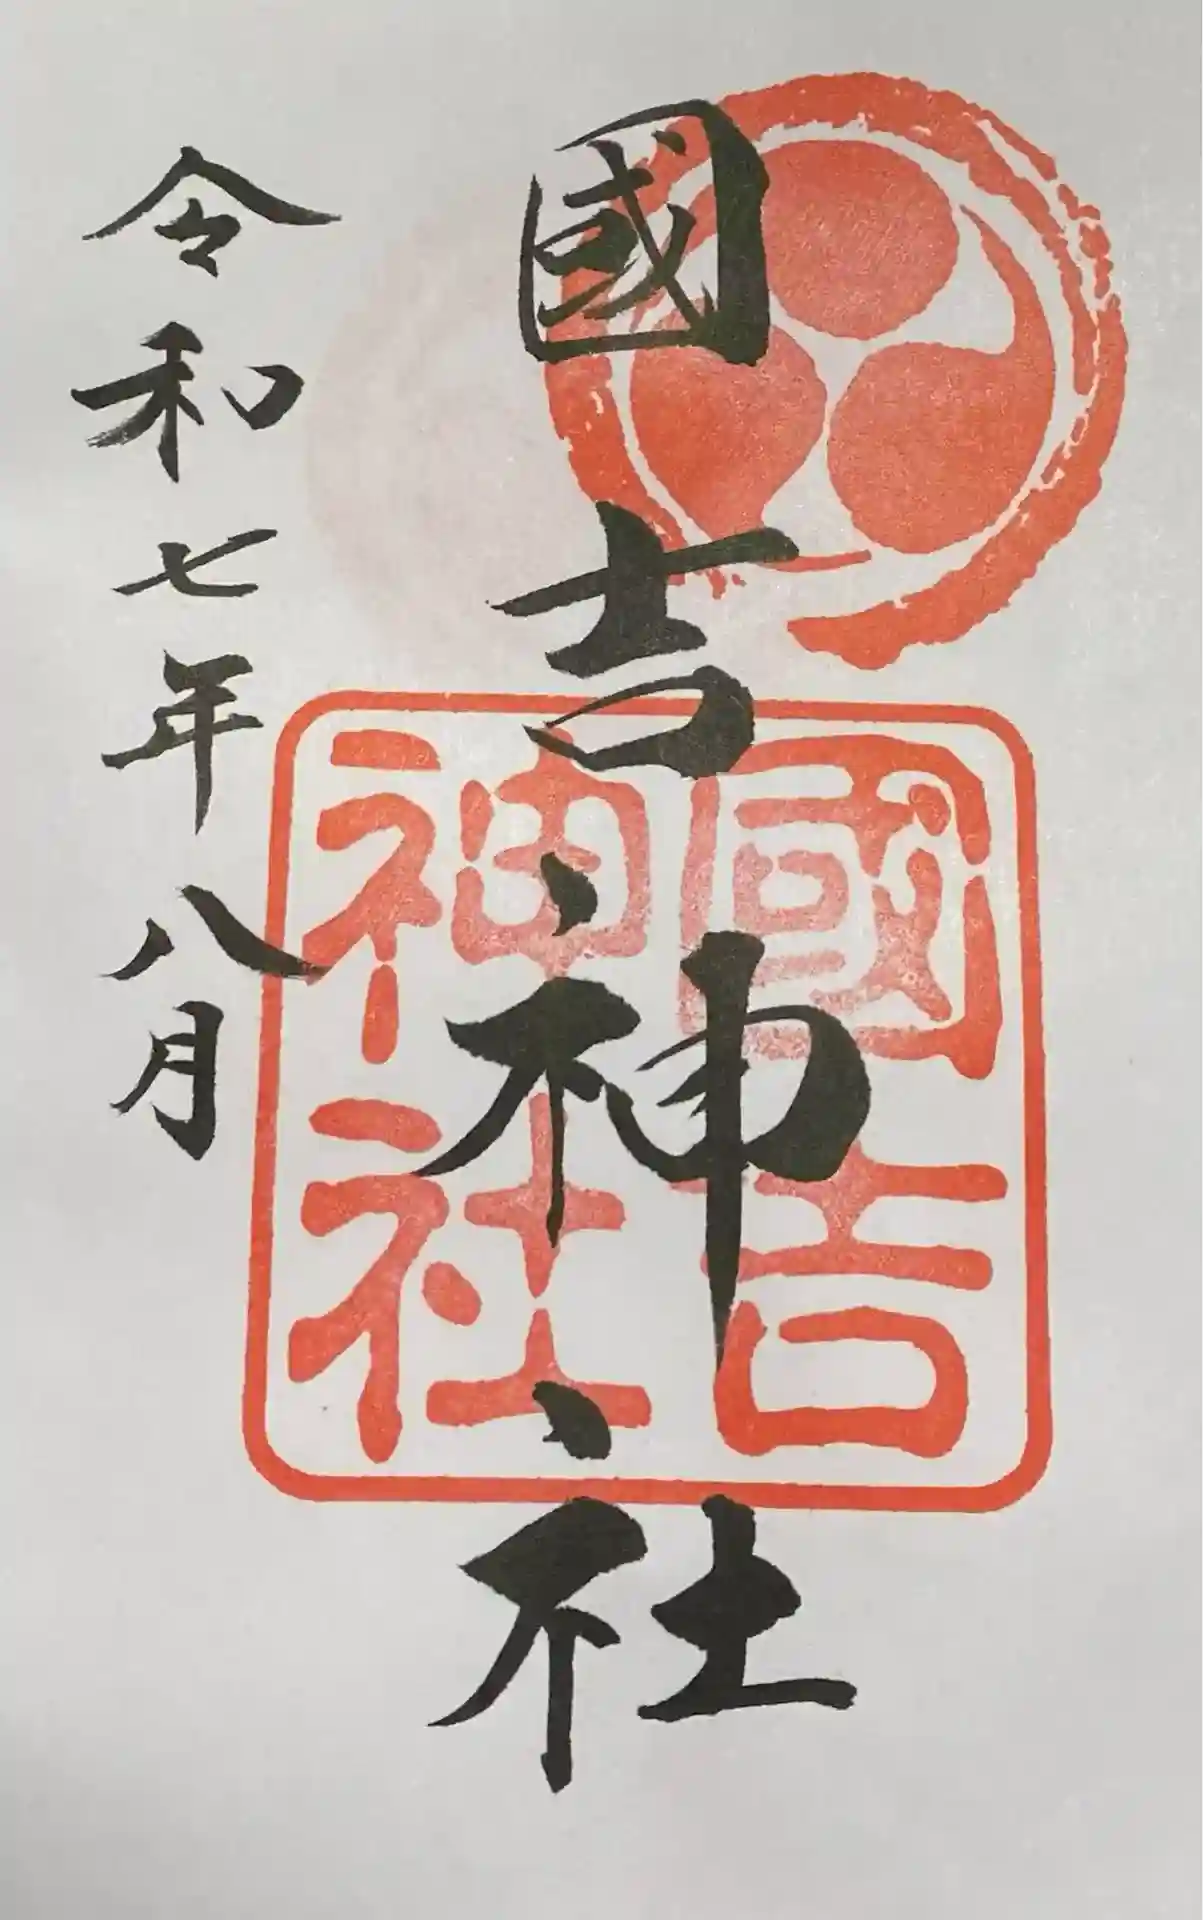 國吉神社
國吉
神社
令和七年八月